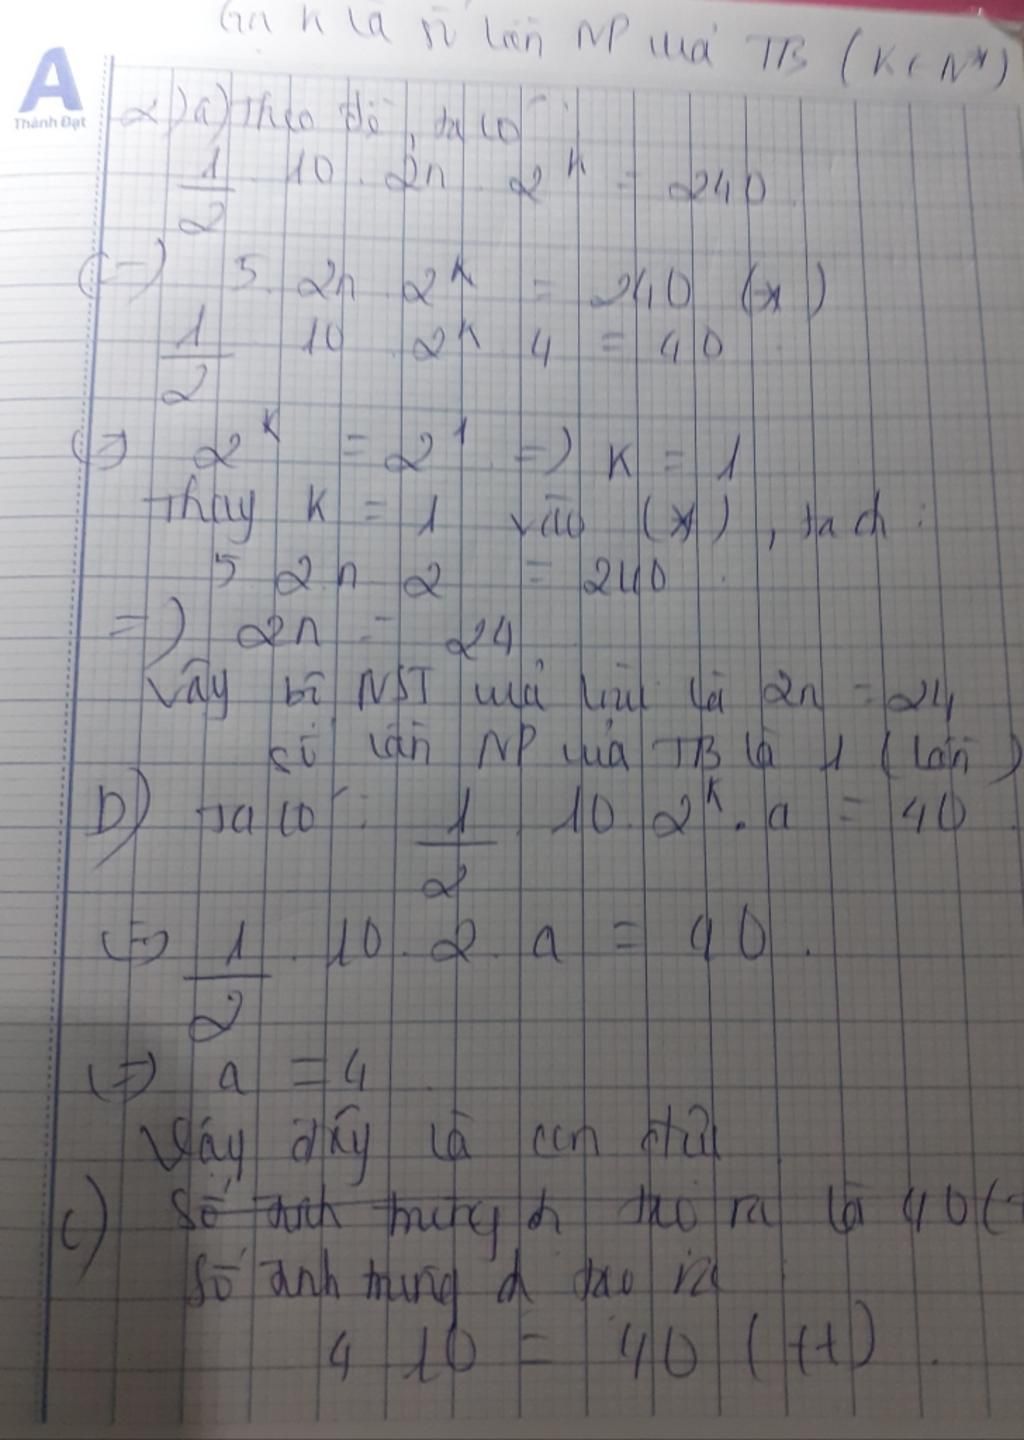 Gọi K là số lần NP của TB (K ∈ N*)
A
Thành Đạt
2) a) Theo đề, ta có:
1/2 . 10 . 2n . 2^K = 240
(=) 5 . 2n . 2^K = 240 (*)
1/2 . 10 . 2^K . 4 = 40
(=) 2^K = 2^1 =) K = 1
Thay K = 1 vào (*), ta đc:
5 . 2n . 2 = 240
=) 2n = 24
Vậy bộ NST của loài là 2n = 24
số lần NP của TB là 1 (lần)
b) Ta có: 1/2 . 10 . 2^K . a = 40
(=) 1/2 . 10 . 2 . a = 40
(=) a = 4
Vậy đây là con đực
c) Số tinh trùng đc tạo ra là 40 (
Số tinh trùng đc tạo ra
4 . 10 = 40 (tt)